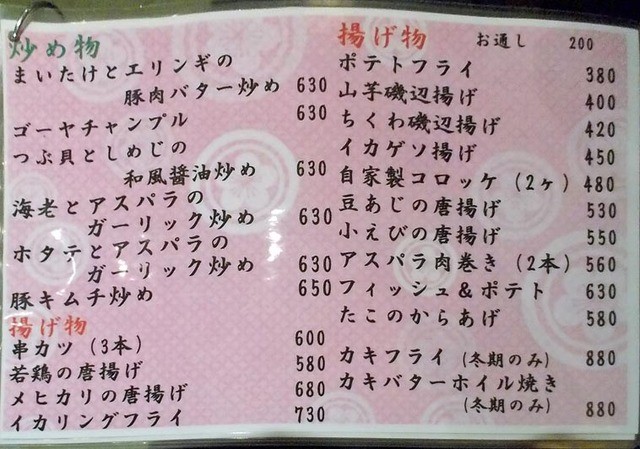 炒め物
まいたけとエリンギの
豚肉バター炒め 630
ゴーヤチャンプル 630
つぶ貝としめじの
和風醤油炒め 630
海老とアスパラの
ガーリック炒め 630
ホタテとアスパラの
ガーリック炒め 630
豚キムチ炒め 650
揚げ物
串カツ (3本) 600
若鶏の唐揚げ 580
メヒカリの唐揚げ 680
イカリングフライ 730
揚げ物 お通し 200
ポテトフライ 380
山芋磯辺揚げ 400
ちくわ磯辺揚げ 420
イカゲソ揚げ 450
自家製コロッケ (2ヶ) 480
豆あじの唐揚げ 530
小えびの唐揚げ 550
アスパラ肉巻き (2本) 560
フィッシュ&ポテト 630
たこのからあげ 580
カキフライ (冬期のみ) 880
カキバターホイル焼き
(冬期のみ) 880